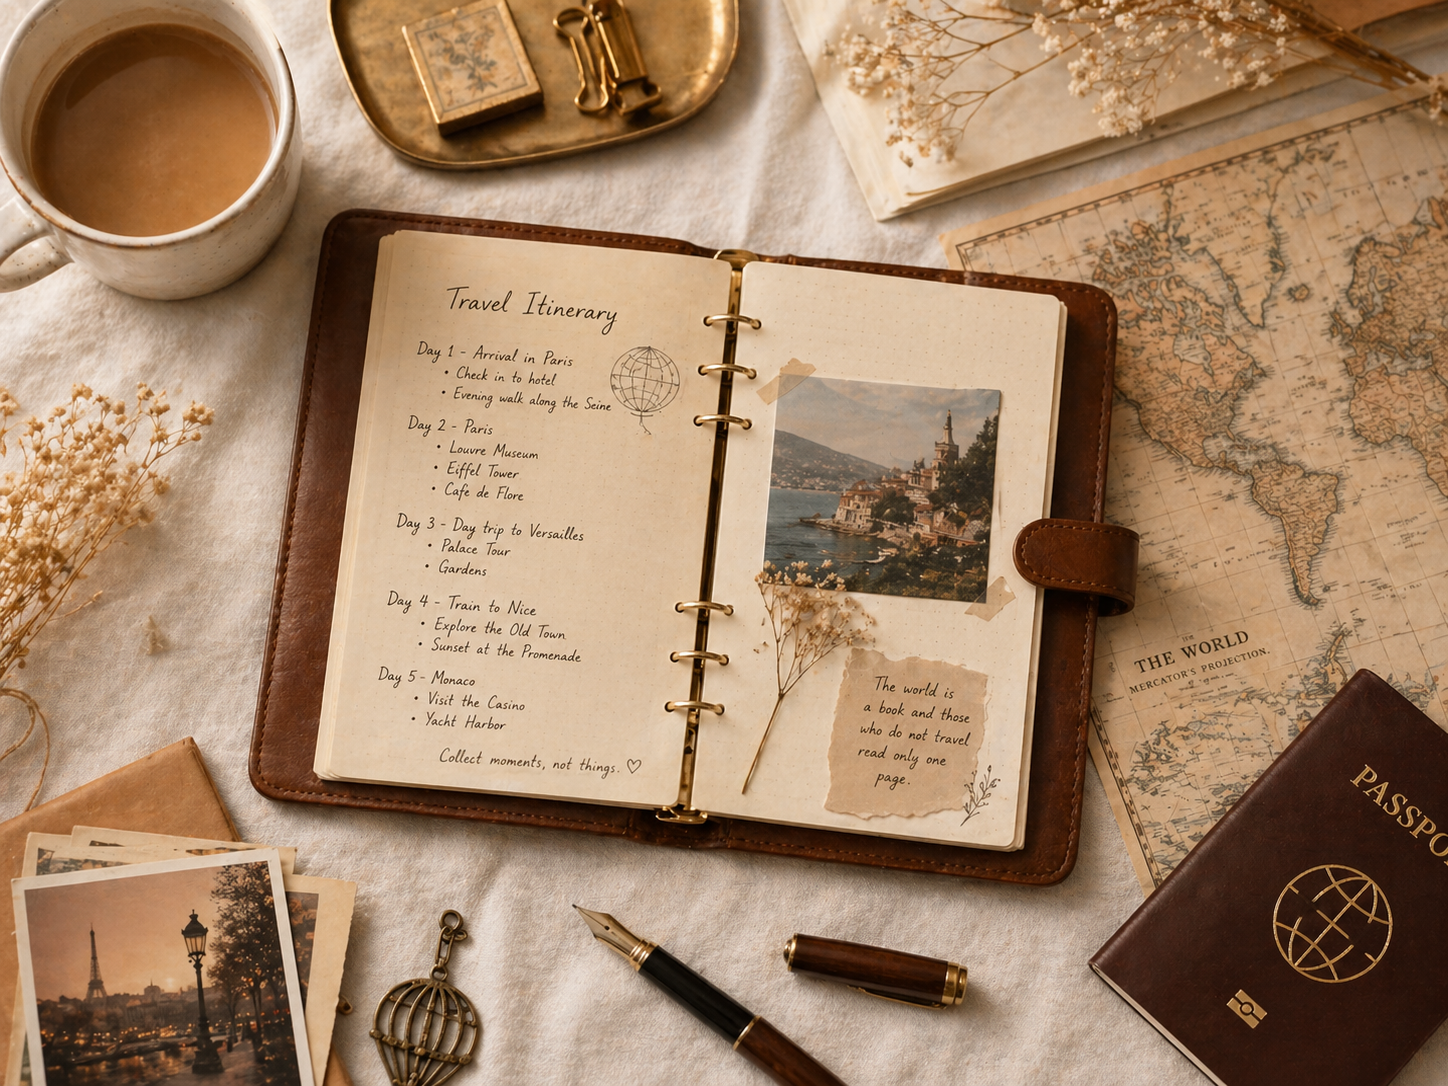 Travel Itinerary
Day 1 - Arrival in Paris
• Check in to hotel
• Evening walk along the Seine
Day 2 - Paris
• Louvre Museum
• Eiffel Tower
• Cafe de Flore
Day 3 - Day trip to Versailles
• Palace Tour
• Gardens
Day 4 - Train to Nice
• Explore the Old Town
• Sunset at the Promenade
Day 5 - Monaco
• Visit the Casino
• Yacht Harbor
Collect moments, not things. ♡
The world is
a book and those
who do not travel
read only one
page.
THE WORLD
MERCATOR'S PROJECTION.
PASSPO